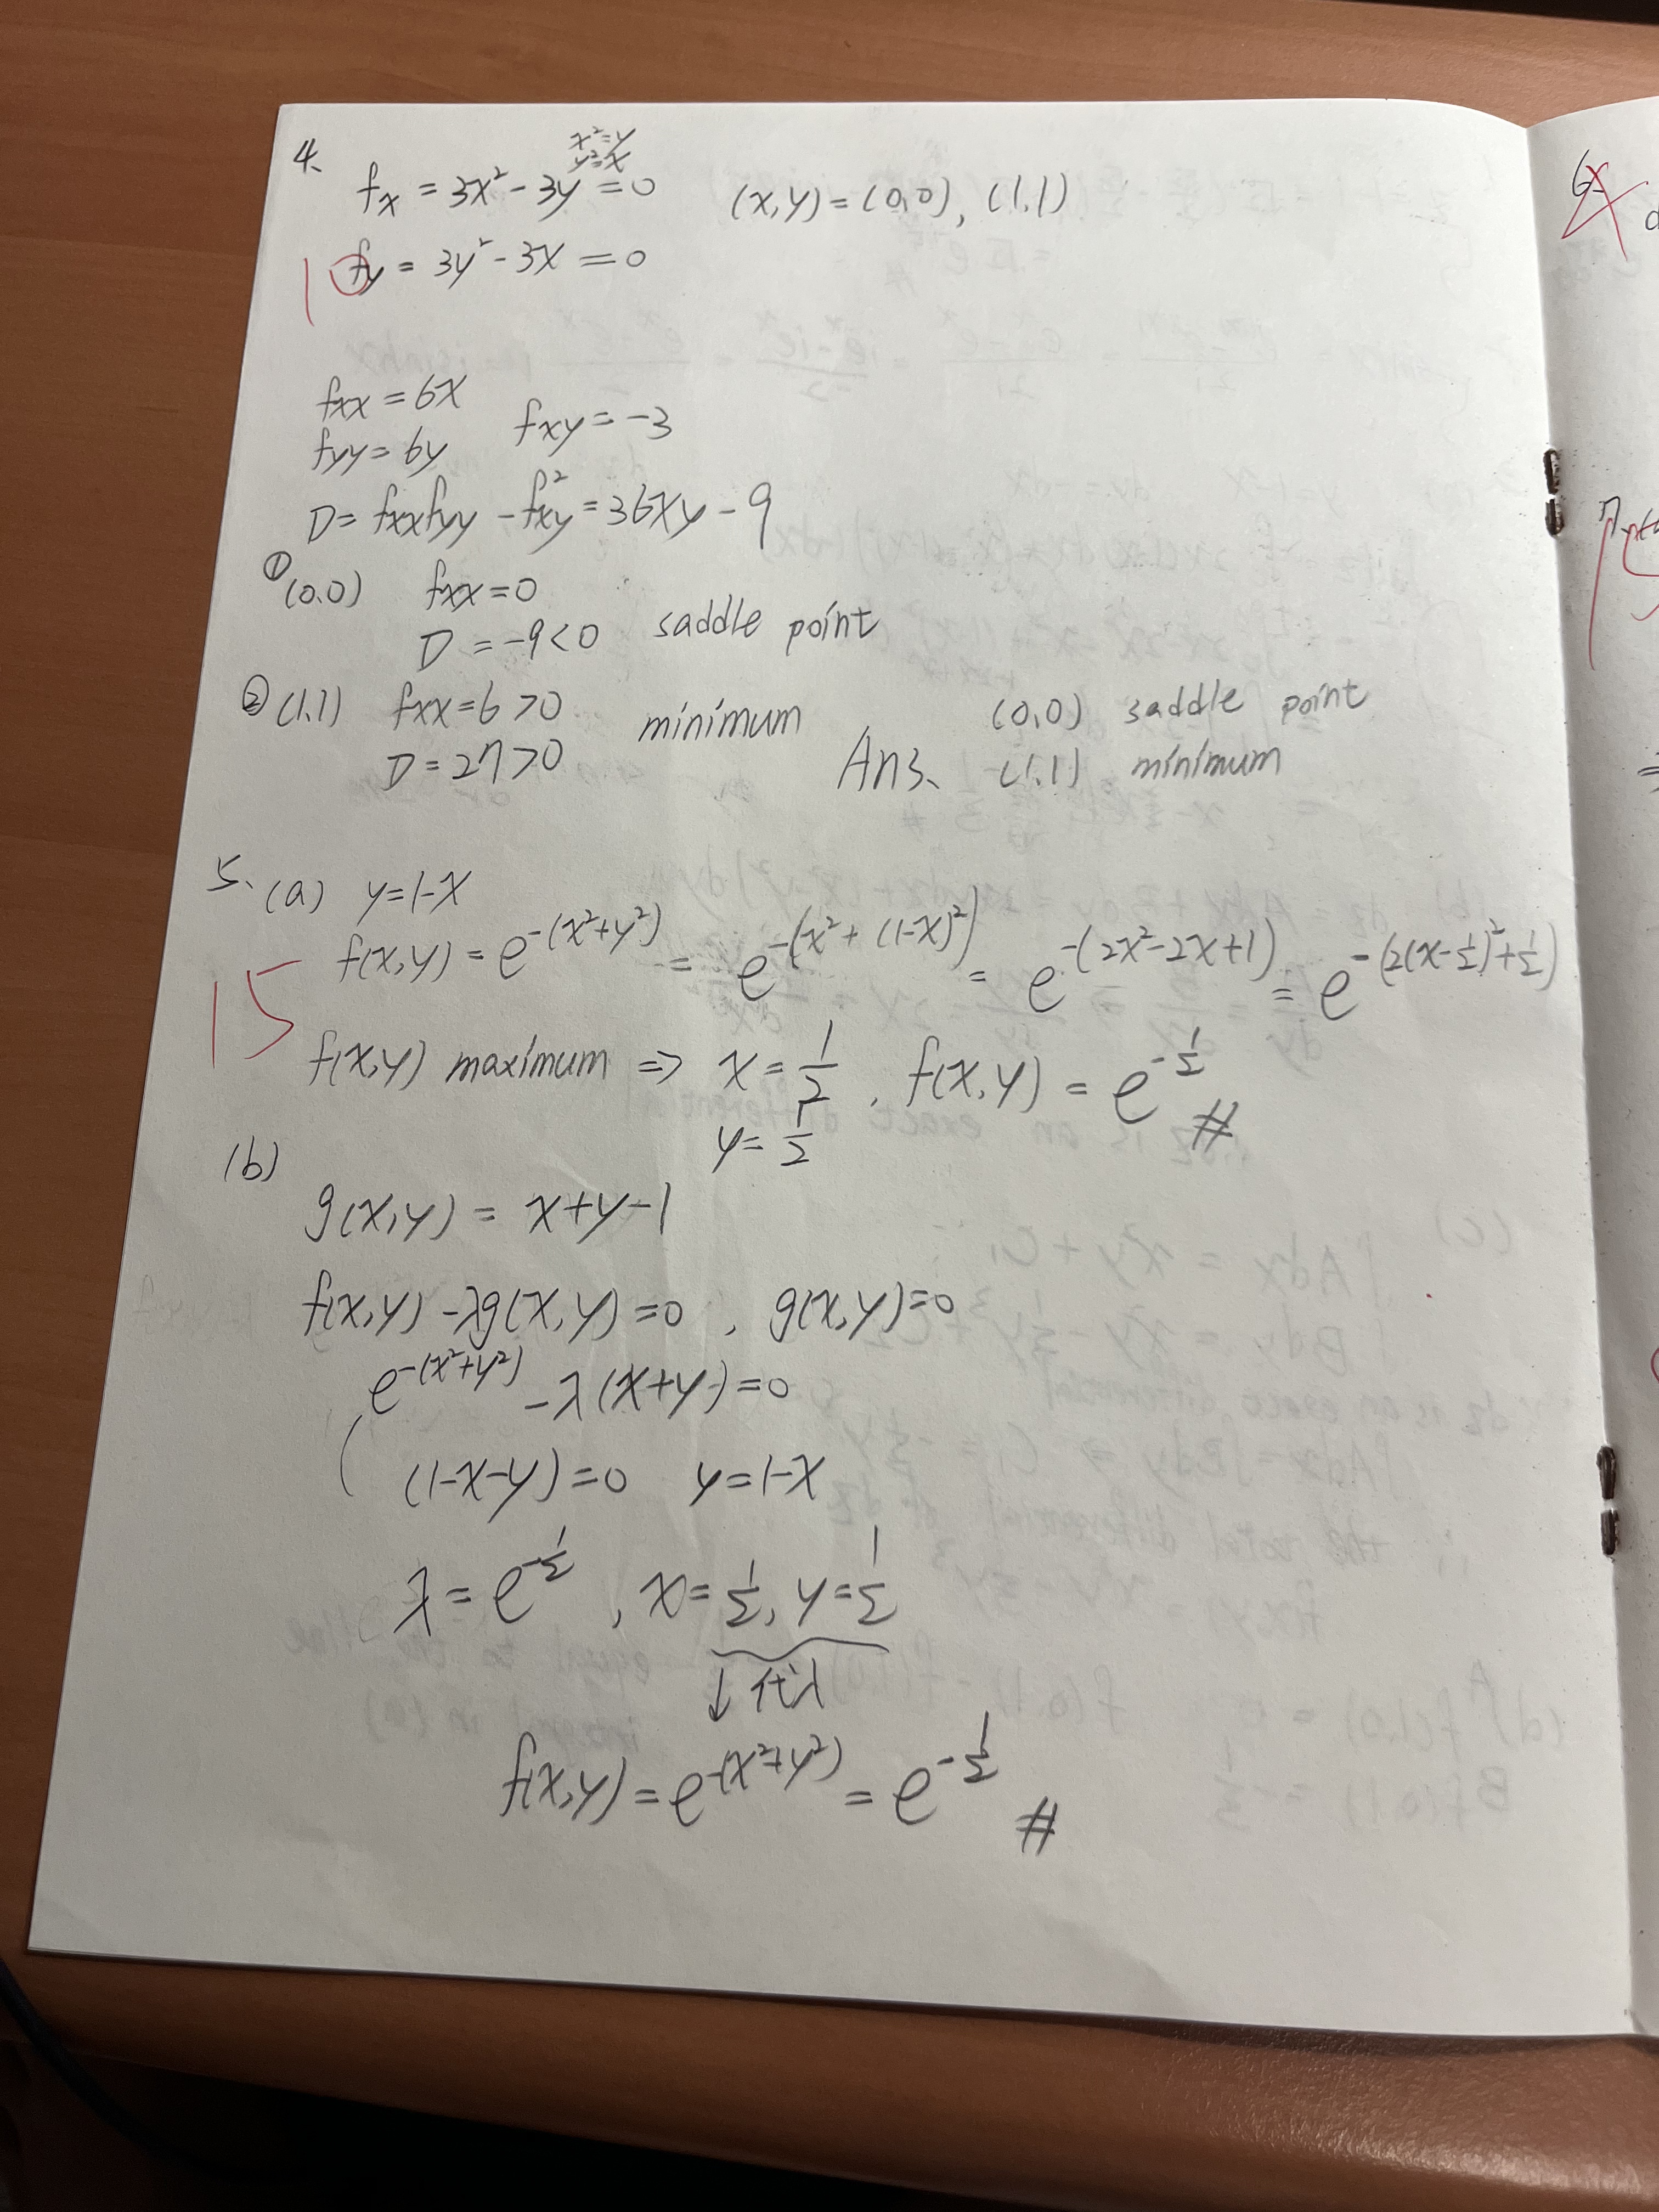 4.
x²=y
y²=x
fx = 3x² - 3y = 0 (x,y) = (0,0), (1,1)
10
fy = 3y² - 3x = 0
fxx = 6x
fxy = -3
fyy = 6y
D = fxxfyy - fxy² = 36xy - 9
① (0,0) fxx = 0
D = -9 < 0 saddle point
② (1,1) fxx = 6 > 0 minimum
D = 27 > 0
Ans. (0,0) saddle point
(1,1) minimum
5. (a) y = 1-x
f(x,y) = e^-(x²+y²) = e^-(x²+(1-x)²) = e^-(2x²-2x+1) = e^-(2(x-1/2)²+1/2)
15
f(x,y) maximum ⇒ x = 1/2, f(x,y) = e^-1/2 #
y = 1/2
(b)
g(x,y) = x+y-1
f(x,y) - λg(x,y) = 0, g(x,y) = 0
e^-(x²+y²) - λ(x+y-) = 0
(1-x-y) = 0 y = 1-x
λ = e^-1/2, x = 1/2, y = 1/2
↓ 代入
f(x,y) = e^-(x²+y²) = e^-1/2 #
6.